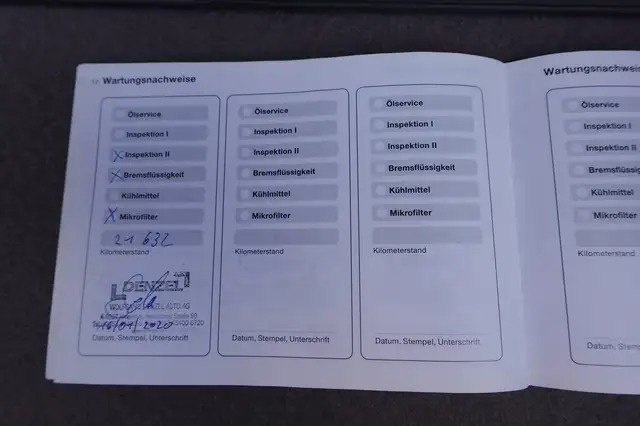 Wartungsnachweise
Ölservice
Inspektion I
X Inspektion II
X Bremsflüssigkeit
Kühlmittel
X Mikrofilter
21 632
Kilometerstand
DENZEL
WOLFGANG DENZEL AUTO AG
Datum, Stempel, Unterschrift
Ölservice
Inspektion I
Inspektion II
Bremsflüssigkeit
Kühlmittel
Mikrofilter
Kilometerstand
Datum, Stempel, Unterschrift
Ölservice
Inspektion I
Inspektion II
Bremsflüssigkeit
Kühlmittel
Mikrofilter
Kilometerstand
Datum, Stempel, Unterschrift
Wartungsnachweis
Ölservice
Inspektion I
Inspektion II
Bremsflüssig
Kühlmittel
Mikrofilter
Kilometerstand
Datum, Stempe